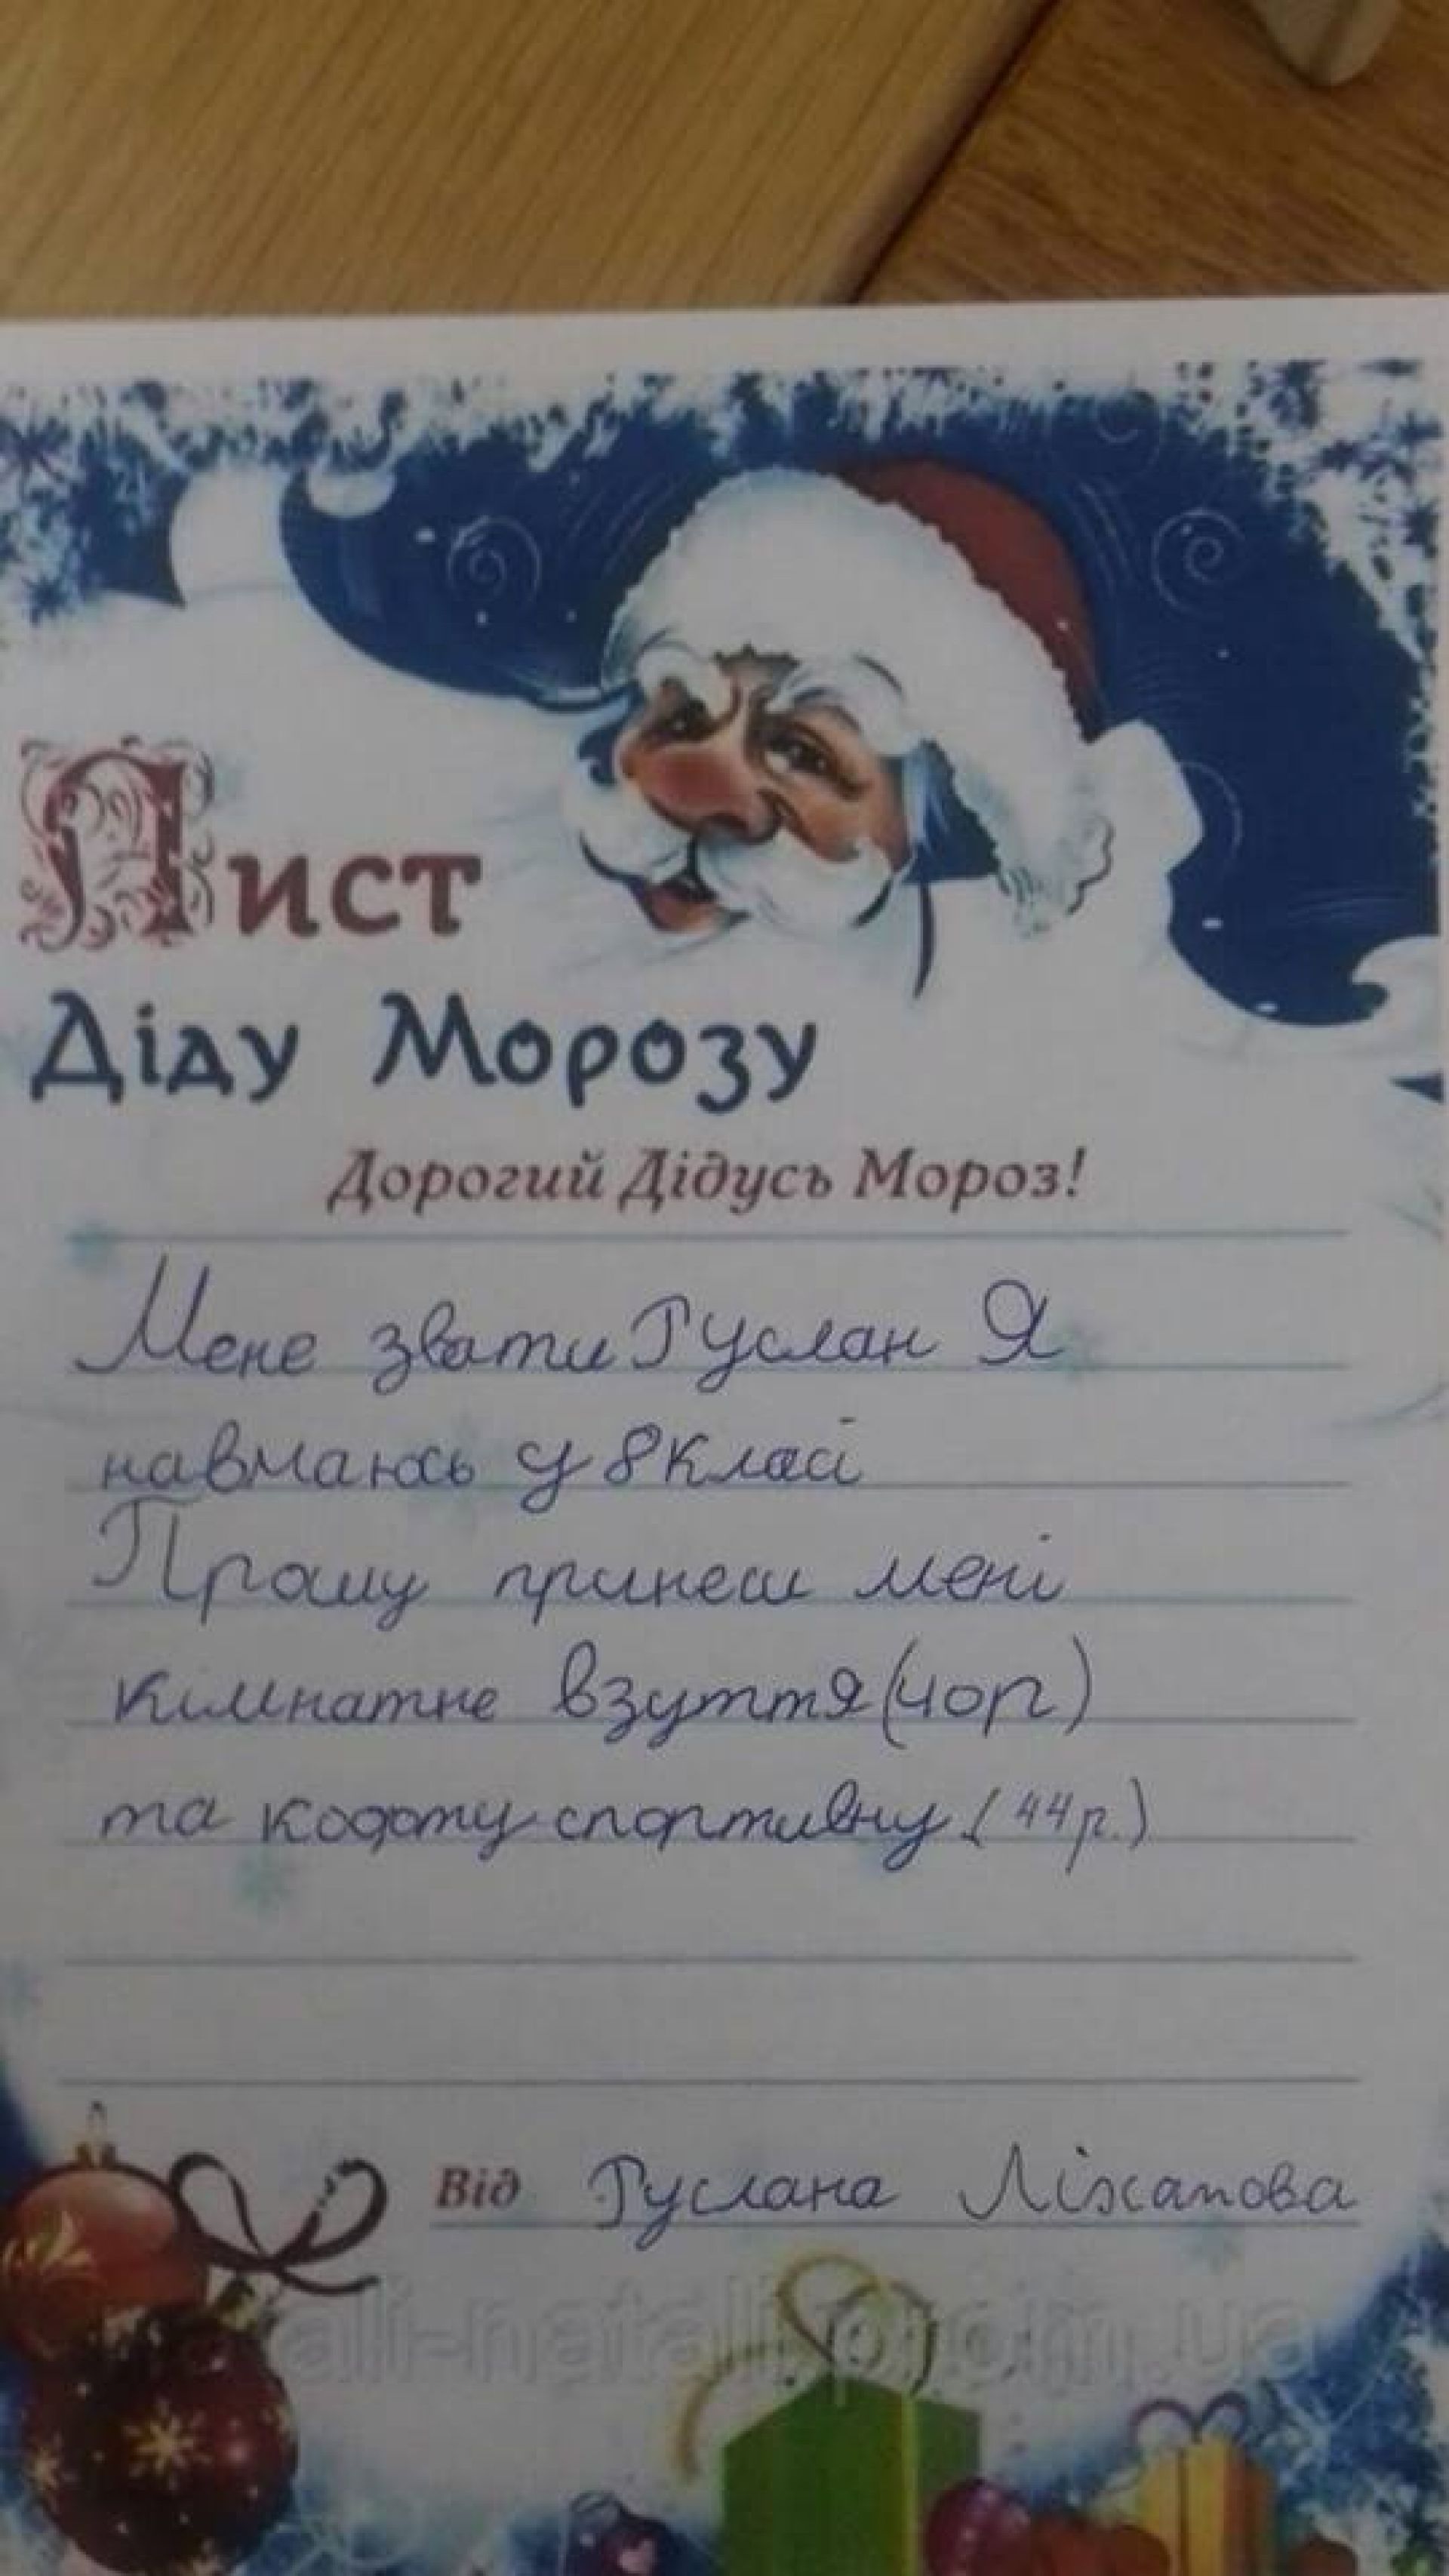 Лист
Діду Морозу
Дорогий Дідусь Мороз!
Мене звати Руслан Я
навчаюсь у 8 класі
Прошу принеси мені
кімнатне взуття (40р)
та кофту спортивну. (44р.)
Від Руслана Ліхапова
ali-natali.prom.ua